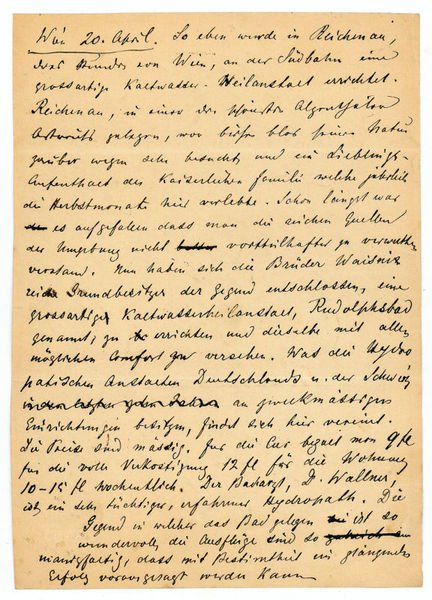 Wien 20. April. So eben wurde in Reichenau,
drei Stunden von Wien, an der Südbahn eine
grossartige Kaltwasser-Heilanstalt errichtet.
Reichenau, in einer der schönsten Alpenthäler
Östreichs gelegen, war bisher blos seiner Natur
wegen sehr besucht und ein Lieblings-
Aufenthalt der Kaiserlichen Familie welche jährlich
die Herbstmonate hier verlebte. Schon längst war
es aufgefallen dass man die reichen Quellen
der Umgebung nicht vortheilhafter zu verwerthen
verstand. Nun haben sich die Brüder Waisnix
reiche Grundbesitzer der Gegend entschlossen, eine
grossartige Kaltwasserheilanstalt, Rudolphsbad
genannt, zu errichten und dieselbe mit allem
möglichen Comfort zu versehen. Was die Hydro
patischen Anstalten Deutschlands u. der Schweiz
an zweckmässigen
Einrichtungen besitzen, findet sich hier vereint.
Die Preise sind mässig. für die Cur bezalt man 9 fl
für die volle Verköstigung 12 fl für die Wohnung
10-15 fl wöchentlich. Der Badearzt, D. Wallner,
ist ein sehr tüchtiger, erfahrener Hydropath. Die
Gegend in welcher das Bad gelegen ist so
wundervoll, die Ausflüge sind so
mannigfaltig, dass mit Bestimmtheit ein glänzender
Erfolg vorausgesagt werden kann